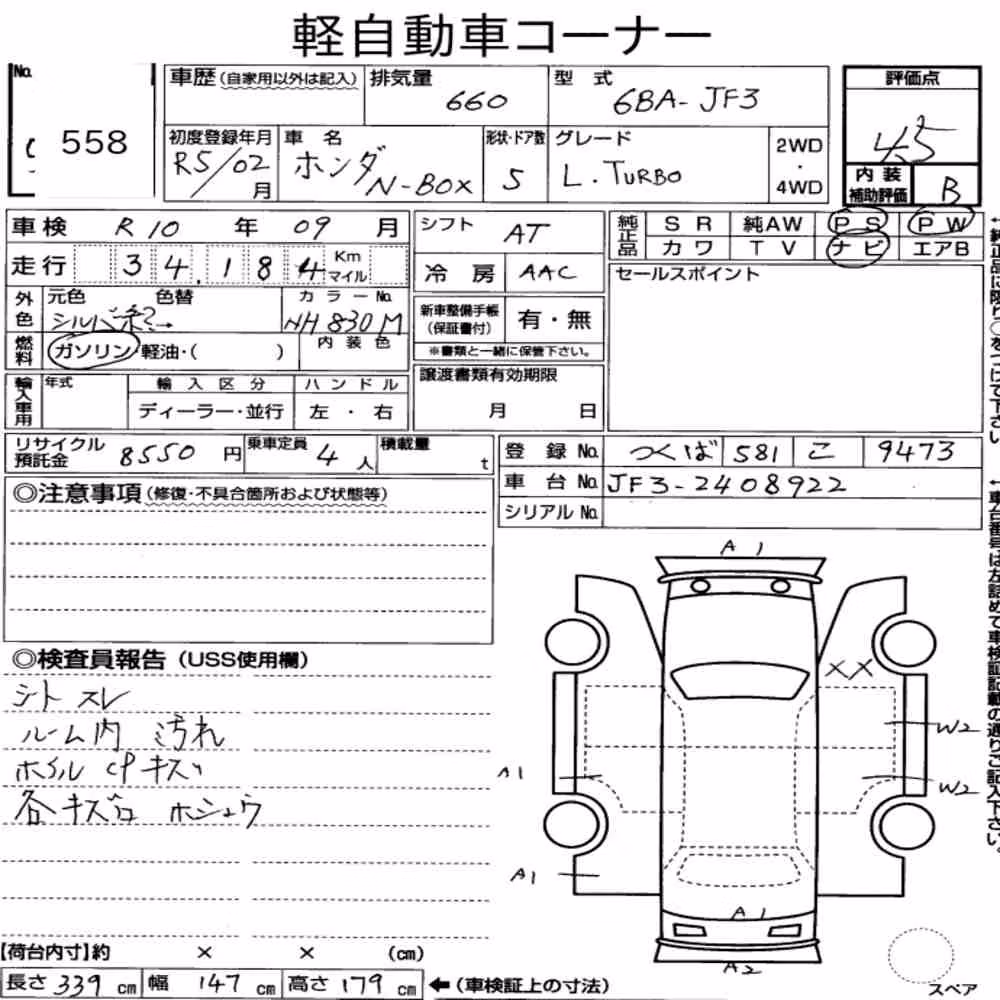 軽自動車コーナー
No. 558
車歴(自家用以外は記入) 排気量 660 型式 6BA-JF3 評価点 4.5
初度登録年月 R5/02月 車名 ホンダ N-BOX 形状・ドア数 5 グレード L.TURBO 2WD・4WD
内装補助評価 B
車検 R10年 09月 シフト AT 純正品 SR 純AW PS PW
カワ TV ナビ エアB
走行 34,184 Km マイル 冷房 AAC セールスポイント
外色 元色 シルバー 色替 カラーNo. NH830M 新車整備手帳(保証書付) 有・無
燃料 ガソリン・軽油・( ) 内装色 ※書類と一緒に保管下さい。
輸入車用 年式 輸入区分 ハンドル 譲渡書類有効期限
ディーラー・並行 左・右 月 日
リサイクル預託金 8550円 乗車定員 4人 積載量 t
登録No. つくば 581 こ 9473
車台No. JF3-2408922
シリアルNo.
◎注意事項(修復・不具合箇所および状態等)
◎検査員報告(USS使用欄)
シート スレ
ルーム内 汚れ
ホイル CPキズ
各キズ ホシュウ
A1
XX
W2
A1
W2
A1
A1
A2
スペア
【荷台内寸】約 × × (cm)
長さ 339 cm 幅 147 cm 高さ 179 cm ←(車検証上の寸法)
←純正品に限り○をつけて下さい
←車台番号は左詰めで車検証記載の通りご記入下さい。